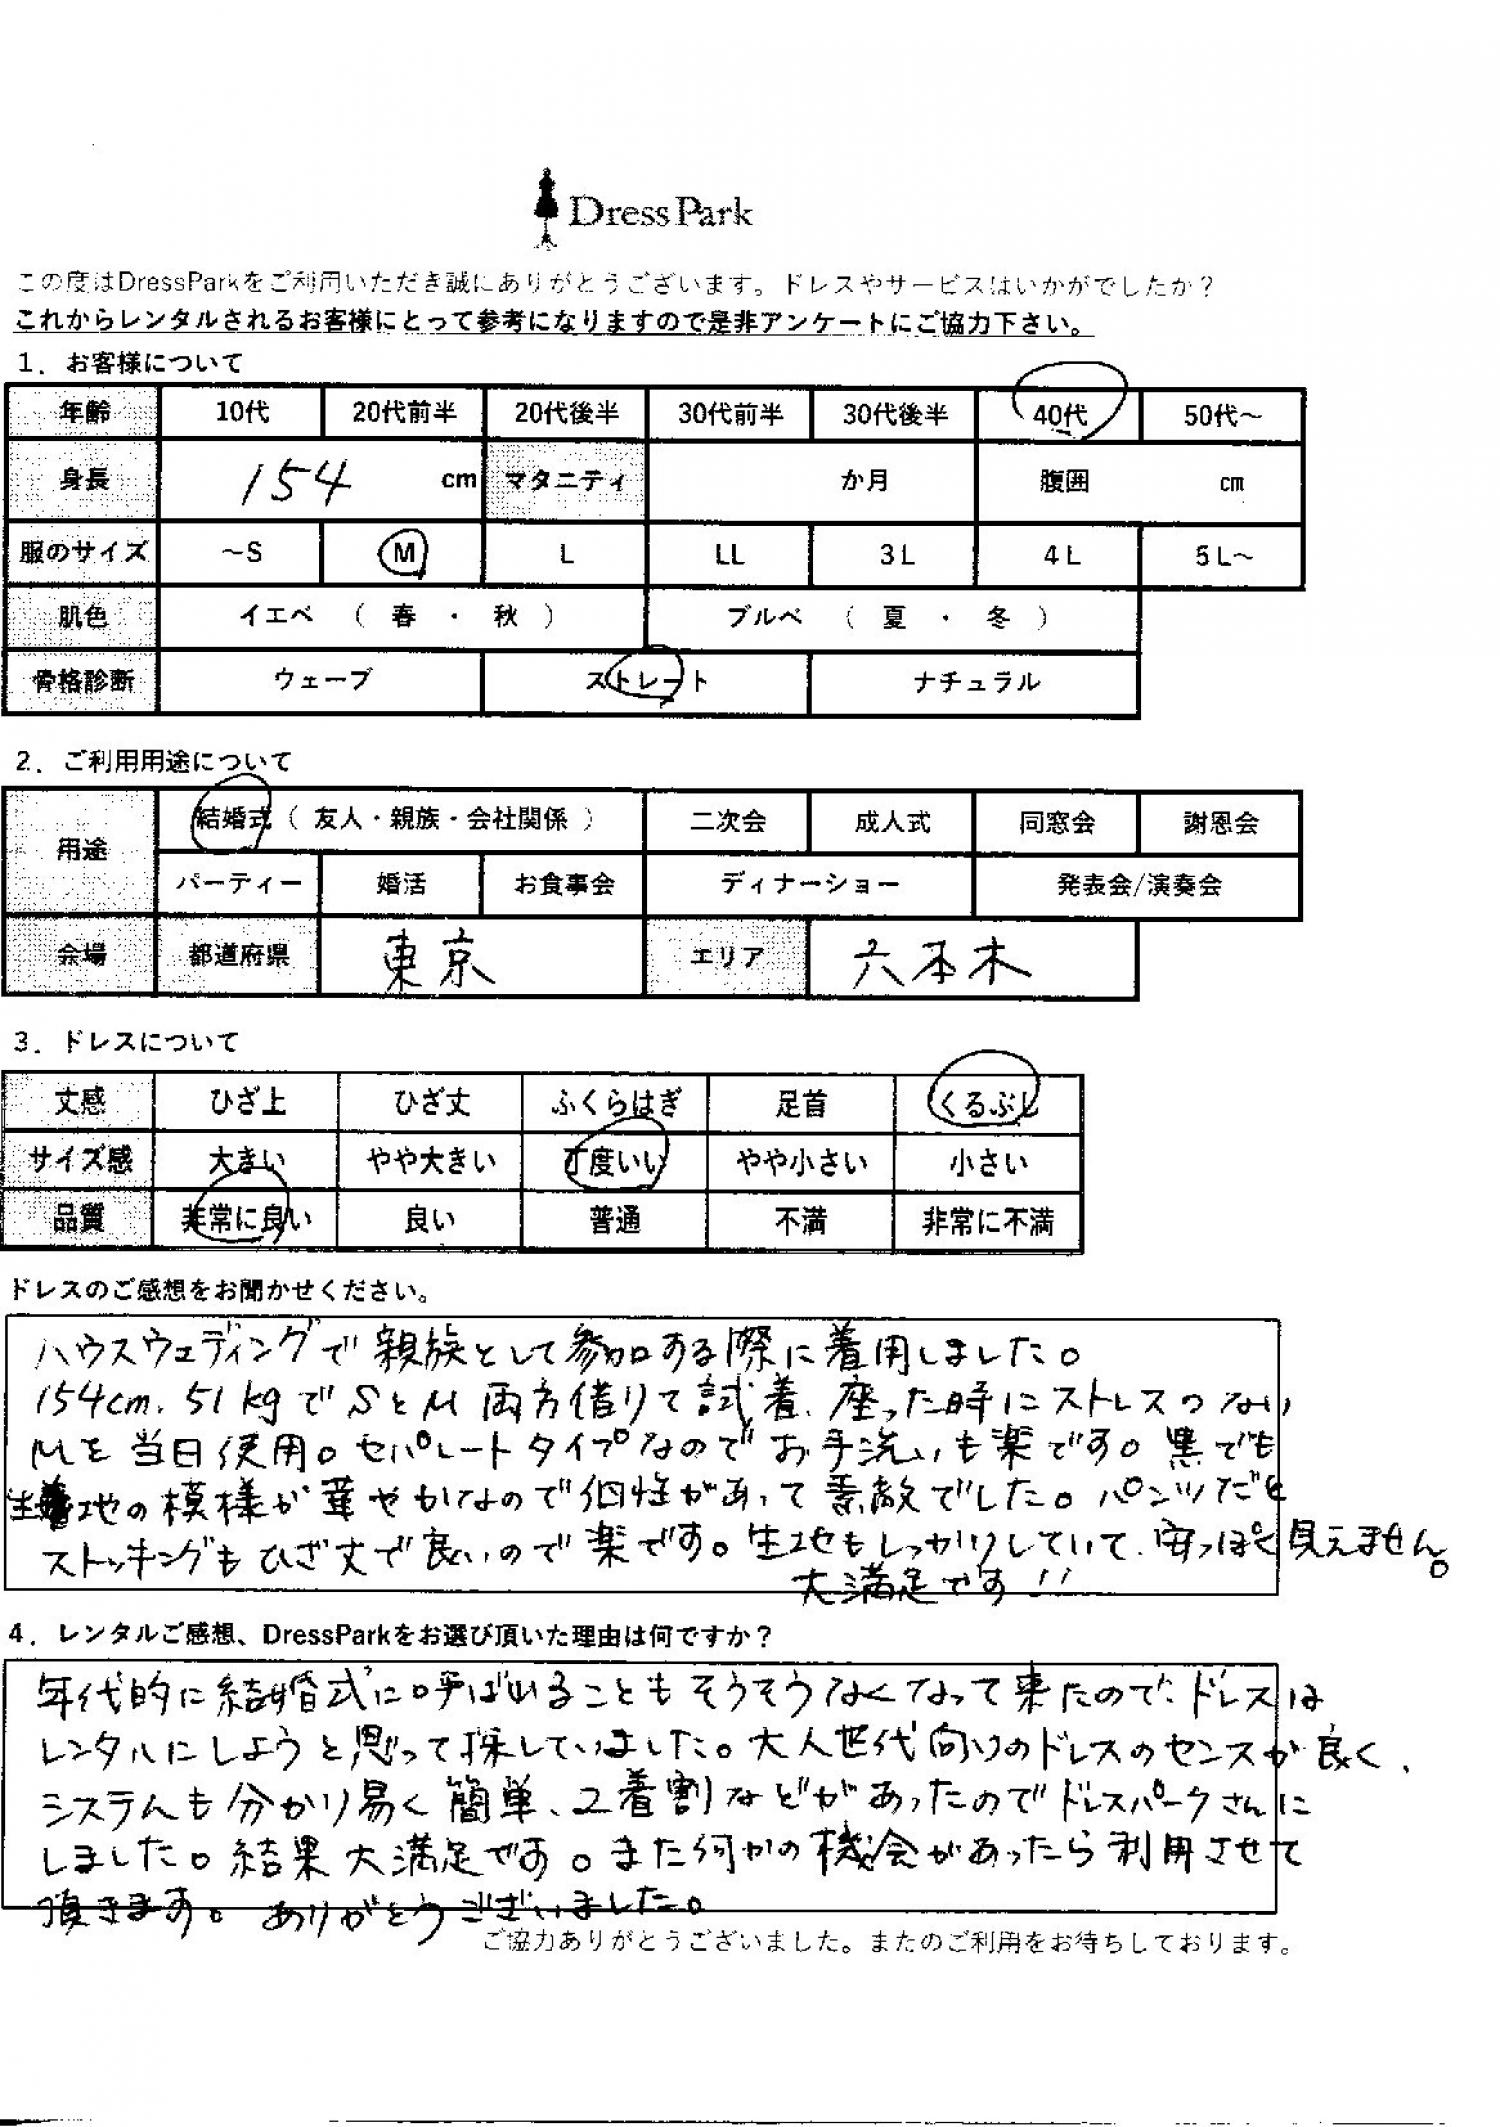 DressPark
この度はDressParkをご利用いただき誠にありがとうございます。ドレスやサービスはいかがでしたか？
これからレンタルされるお客様にとって参考になりますので是非アンケートにご協力下さい。
1．お客様について
年齢 10代 20代前半 20代後半 30代前半 30代後半 40代 50代～
身長 154 cm マタニティ か月 腹囲 cm
服のサイズ ～S M L LL 3L 4L 5L～
肌色 イエベ （ 春 ・ 秋 ） ブルベ （ 夏 ・ 冬 ）
骨格診断 ウェーブ ストレート ナチュラル
2．ご利用用途について
用途 結婚式（ 友人・親族・会社関係 ） 二次会 成人式 同窓会 謝恩会
パーティー 婚活 お食事会 ディナーショー 発表会/演奏会
会場 都道府県 東京 エリア 六本木
3．ドレスについて
丈感 ひざ上 ひざ丈 ふくらはぎ 足首 くるぶし
サイズ感 大きい やや大きい 丁度いい やや小さい 小さい
品質 非常に良い 良い 普通 不満 非常に不満
ドレスのご感想をお聞かせください。
ハウスウェディングで親族として参加する際に着用しました。
154cm. 51kgでSとM両方借りて試着、座った時にストレスのない
Mを当日使用。セパレートタイプなのでお手洗いも楽です。黒でも
生地の模様が華やかなので個性があって素敵でした。パンツだと
ストッキングもひざ丈で良いので楽です。生地もしっかりしていて、安っぽく見えません。
大満足です!!
4．レンタルご感想、DressParkをお選び頂いた理由は何ですか？
年代的に結婚式に呼ばれることもそうそうなくなって来たので、ドレスは
レンタルにしようと思って探していました。大人世代向けのドレスのセンスが良く、
システムも分かり易く簡単、2着割などがあったのでドレスパークさんに
しました。結果大満足です。また何かの機会があったら利用させて
頂きます。ありがとうございました。
ご協力ありがとうございました。またのご利用をお待ちしております。